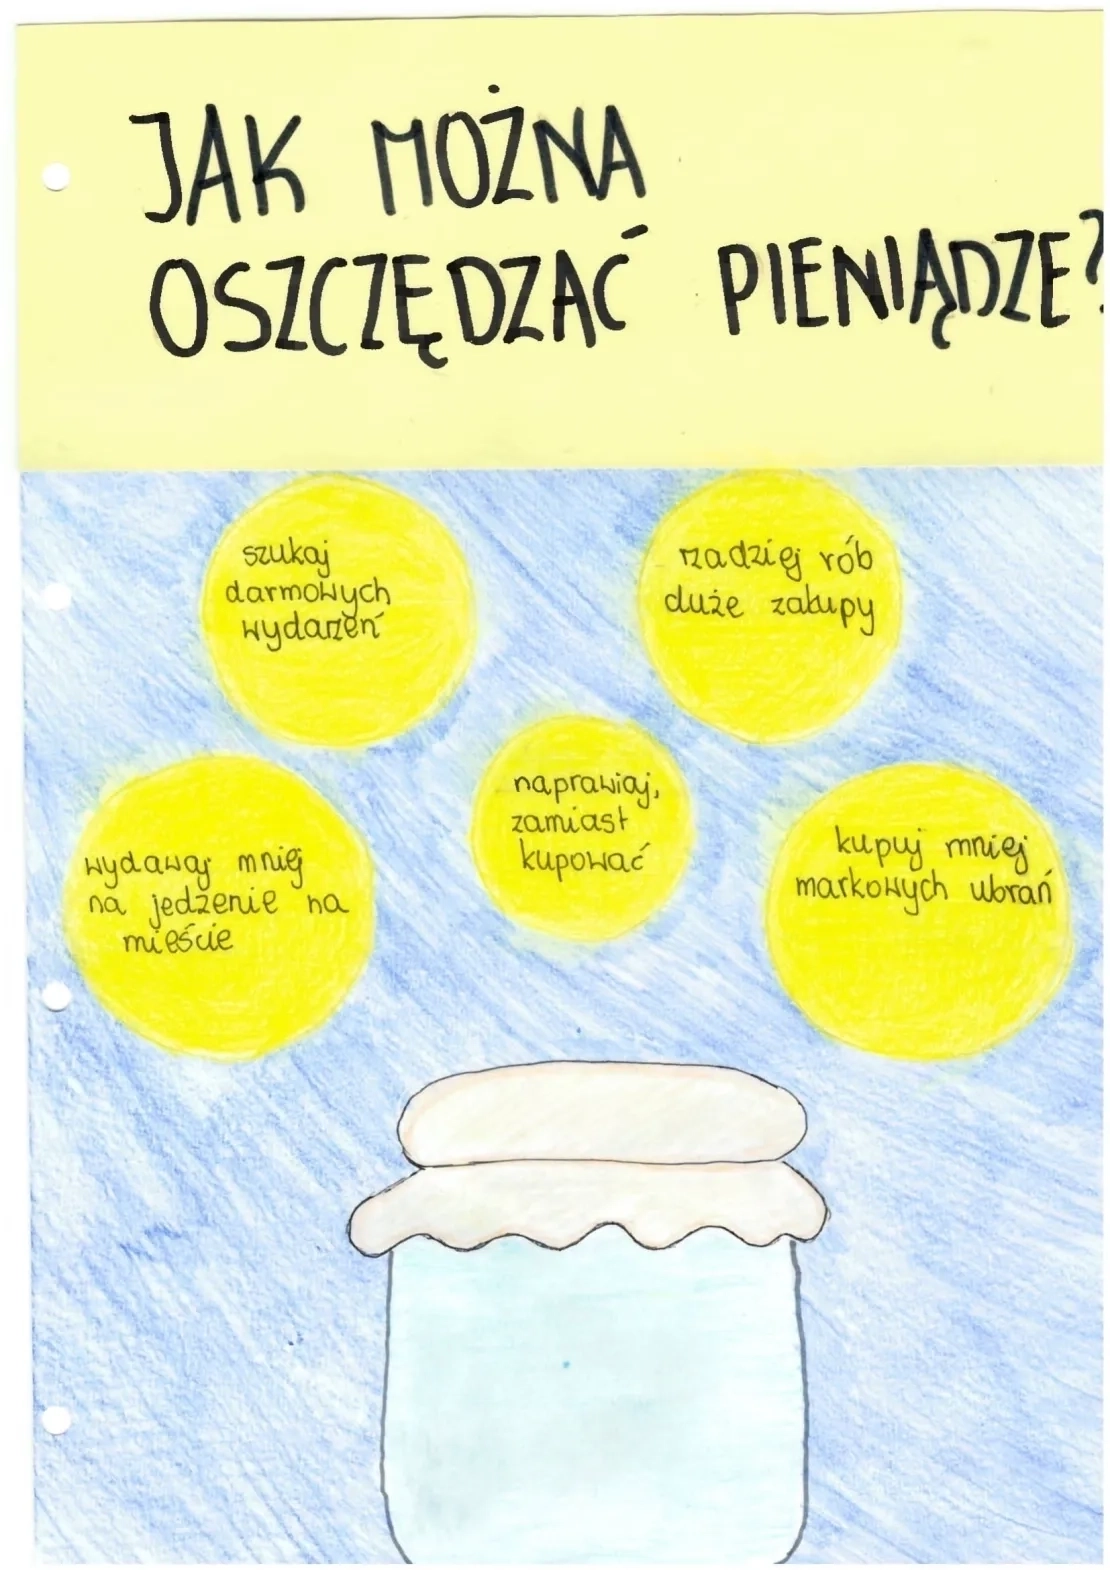 JAK MOŻNA
OSZCZĘDZAĆ PIENIĄDZE?
szukaj
darmowych
wydarzeń
rzadziej rób
duże zakupy
naprawiaj,
zamiast
kupować
wydawaj mniej
na jedzenie na
mieście
kupuj mniej
markowych ubrań